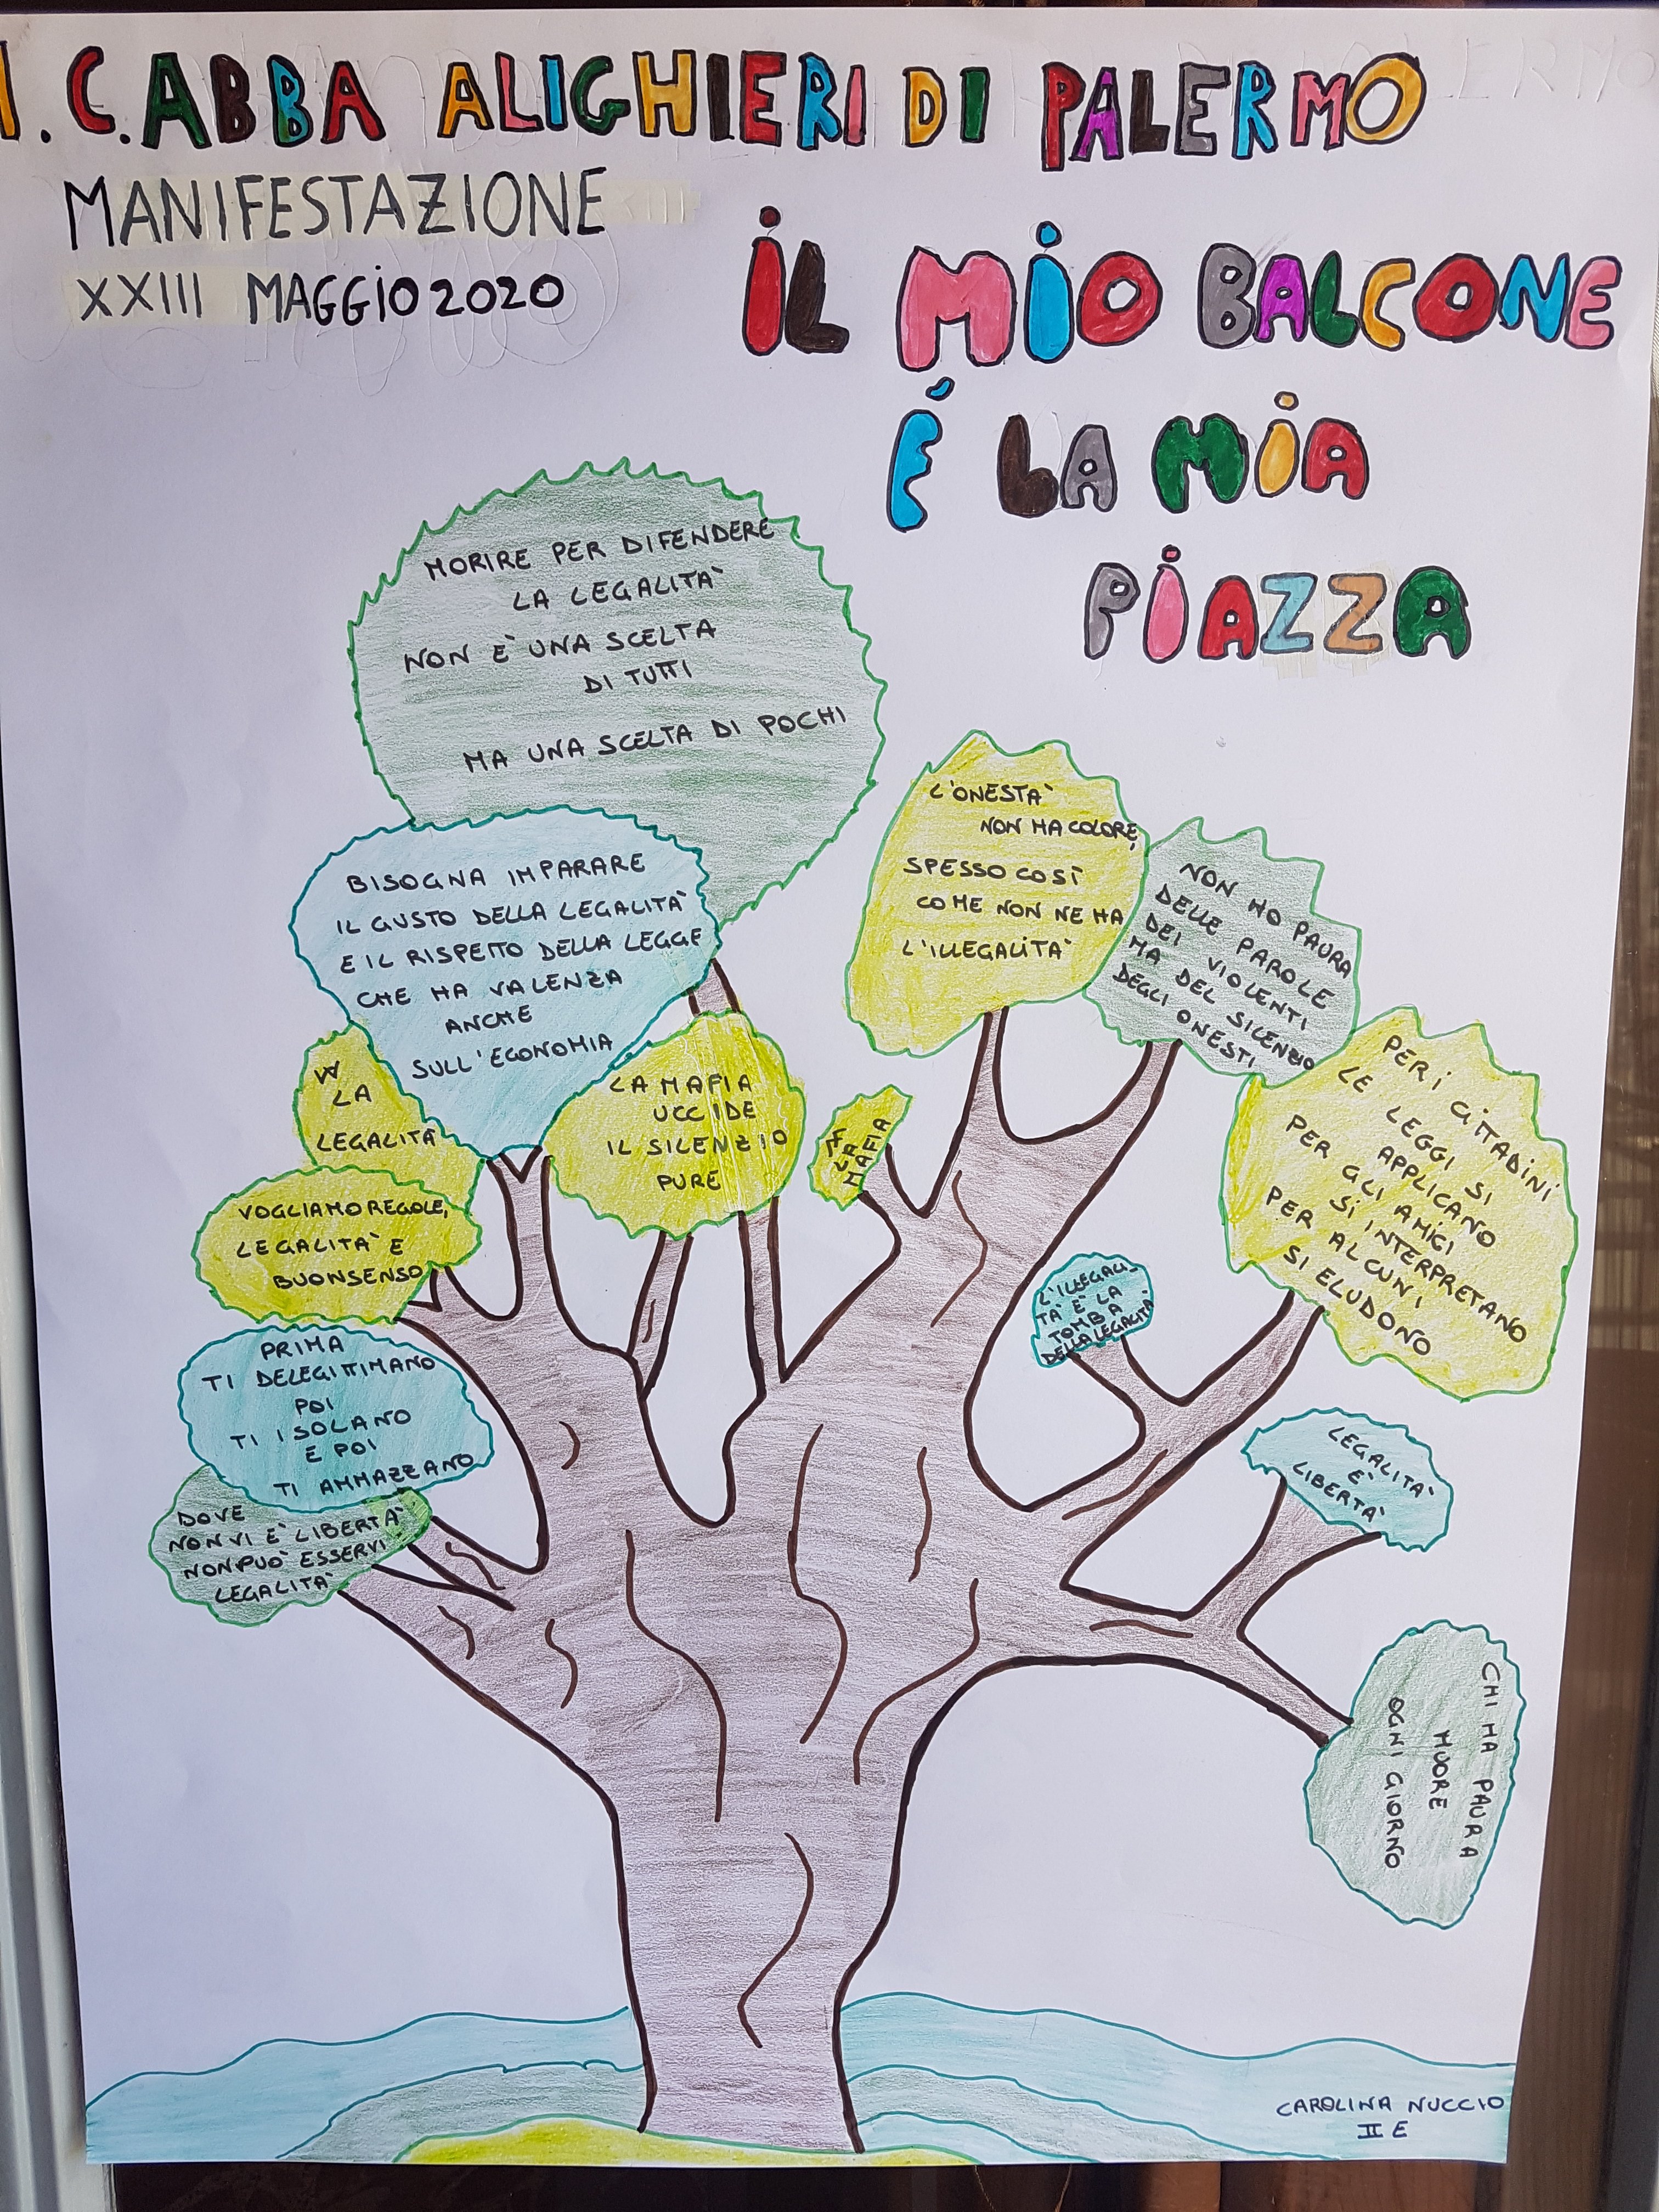 I.C. ABBA ALIGHIERI DI PALERMO
MANIFESTAZIONE
XXIII MAGGIO 2020
IL MIO BALCONE
É LA MIA
PIAZZA
MORIRE PER DIFENDERE
LA LEGALITA'
NON E' UNA SCELTA
DI TUTTI
MA UNA SCELTA DI POCHI
BISOGNA IMPARARE
IL GUSTO DELLA LEGALITA'
E IL RISPETTO DELLA LEGGE
CHE HA VALENZA
ANCHE
SULL'ECONOMIA
W
LA
LEGALITA'
LA MAFIA
UCCIDE
IL SILENZIO
PURE
VOGLIAMO REGOLE,
LEGALITA' E
BUONSENSO
PRIMA
TI DELEGITTIMANO
POI
TI ISOLANO
E POI
TI AMMAZZANO
DOVE
NON VI E' LIBERTA'
NON PUO' ESSERVI
LEGALITA'
L'ONESTA'
NON HA COLORE,
SPESSO COSÌ
COME NON NE HA
L'ILLEGALITA'
NON HO PAURA
DELLE PAROLE
DEI VIOLENTI
MA DEL SILENZIO
DEGLI ONESTI
LA
MAFIA
PER I CITTADINI
LE LEGGI SI
APPLICANO
PER GLI AMICI
SI INTERPRETANO
PER ALCUNI
SI ELUDONO
L'ILLEGALI-
TA' E' LA
TOMBA
DELLA LEGALITA'
LEGALITA'
E'
LIBERTA'
CHI HA PAURA
MUORE
OGNI GIORNO
CAROLINA NUCCIO
II E